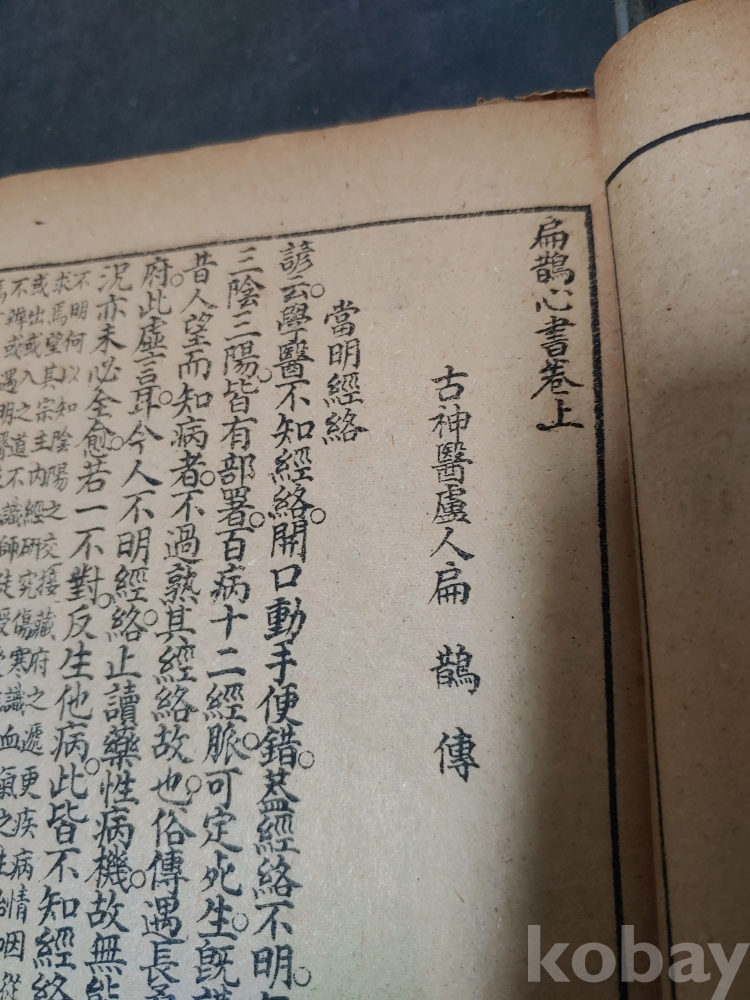 扁鵲心書卷上
古神醫盧人扁鵲傳
當明經絡
諺云。學醫不知經絡。開口動手便錯。蓋經絡不明。
三陰三陽。皆有部署。百病十二經脈。可定死生。既講
昔人望而知病者。不過熟其經絡故也。俗傳遇長
府。此虛言耳。今人不明經絡。止讀藥性病機。故無能
況亦未必全愈。若一不對。反生他病。此皆不知經絡
不明何以知陰陽之交接藏府之遞更疾病情因從
求焉望其宗主內經研究傷寒識血氣之生
或出或入之道不識師徒授
不辨或遇明醫
kobay